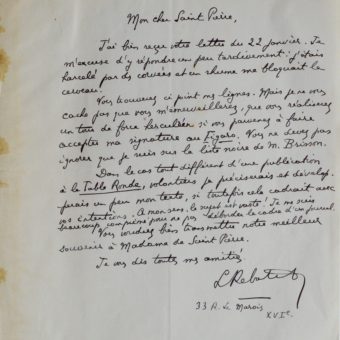 Mon cher Saint Paire,
J'ai bien reçu votre lettre du 22 janvier. Je
m'excuse d'y répondre un peu tardivement : j'étais
harcelé par des corvées et un rhume me bloquait le
cerveau.
Vous trouverez ci joint mes lignes. Mais je ne vous
cache pas que vous m'émerveillerez, que vous réaliserez
un tour de force herculéen si vous parvenez à faire
accepter ma signature au Figaro. Vous ne devez pas
ignorer que je suis sur la liste noire de M. Brisson.
Dans le cas tout différent d'une publication
à la Table Ronde, volontiers je préciserais et dévelop-
perais un peu mon texte, si toutefois cela cadrait avec
vos intentions. A mon sens, le sujet est vaste ! Je me suis
beaucoup comprimé pour ne pas déborder le cadre d'un journal.
Vous voudrez bien transmettre notre meilleur
souvenir à Madame de Saint Paire.
Je vous dis toutes mes amitiés.
L Rebatet
33 R. Le Marois
XVIe